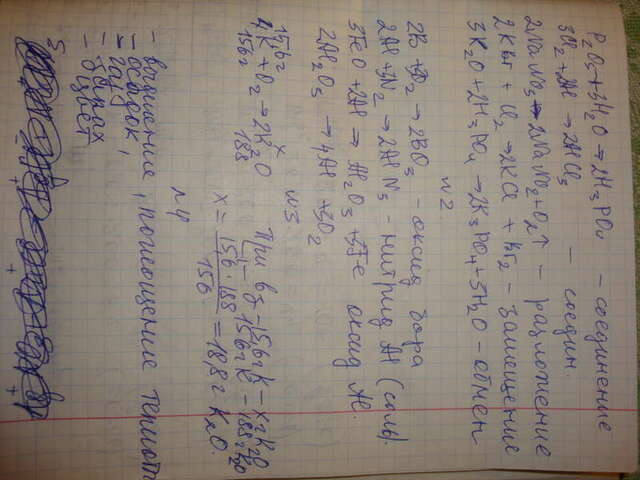 P₂O₅ + 3H₂O → 2H₃PO₄ – соединение
3Cl₂ + 2Al → 2AlCl₃ – соедин.
2NaNO₃ → 2NaNO₂ + O₂↑ – разложение
2KBr + Cl₂ → 2KCl + Br₂ – замещение
3K₂O + 2H₃PO₄ → 2K₃PO₄ + 3H₂O – обмен
№2
2B + 3O₂ → 2BO₃ – оксид бора
2Al + 3N₂ → 2AlN₃ – нитрид Al (соль).
3FeO + 2Al → Al₂O₃ + 3Fe оксид Al.
2Al₂O₃ → 4Al + 3O₂
№3
15,6г х
4K + O₂ → 2K₂O
156г 188
При вз – 15,6г K – х г K₂O
156г K – 188г K₂O
x = 15,6 · 188 / 156 = 18,8г K₂O.
№4
– выделение, поглощение теплоты
– осадок,
– газ
– запах
– цвет